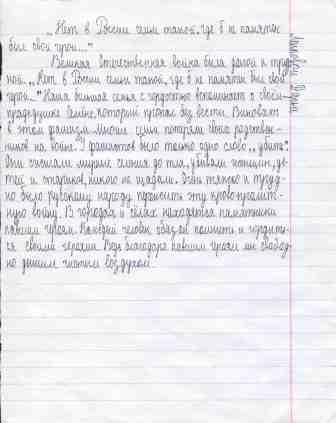 „Нет в России семьи такой, где б не памятен
был свой герой..."
Великая отечественная война была долгой и труд-
ной. „Нет в России семьи такой, где б не памятен был свой
герой..." Наша большая семья с гордостью вспоминает о своём
прадедушке Семёне, который пропал без вести. Виноваты
в этом фашисты. Многие семьи потеряли своих родствен-
ников на войне. У фашистов было только одно слово „убить".
Они сжигали мирные селения до тла, убивали женщин, де-
тей и стариков, никого не щадили. Очень тяжело и труд-
но было русскому народу пережить эту кровопролит-
ную войну. В городах и сёлах находятся памятники
павшим героям. Каждый человек обязан помнить и гордить-
ся своими героями. Ведь благодаря павшим героям мы свобод-
но дышим чистым воздухом.